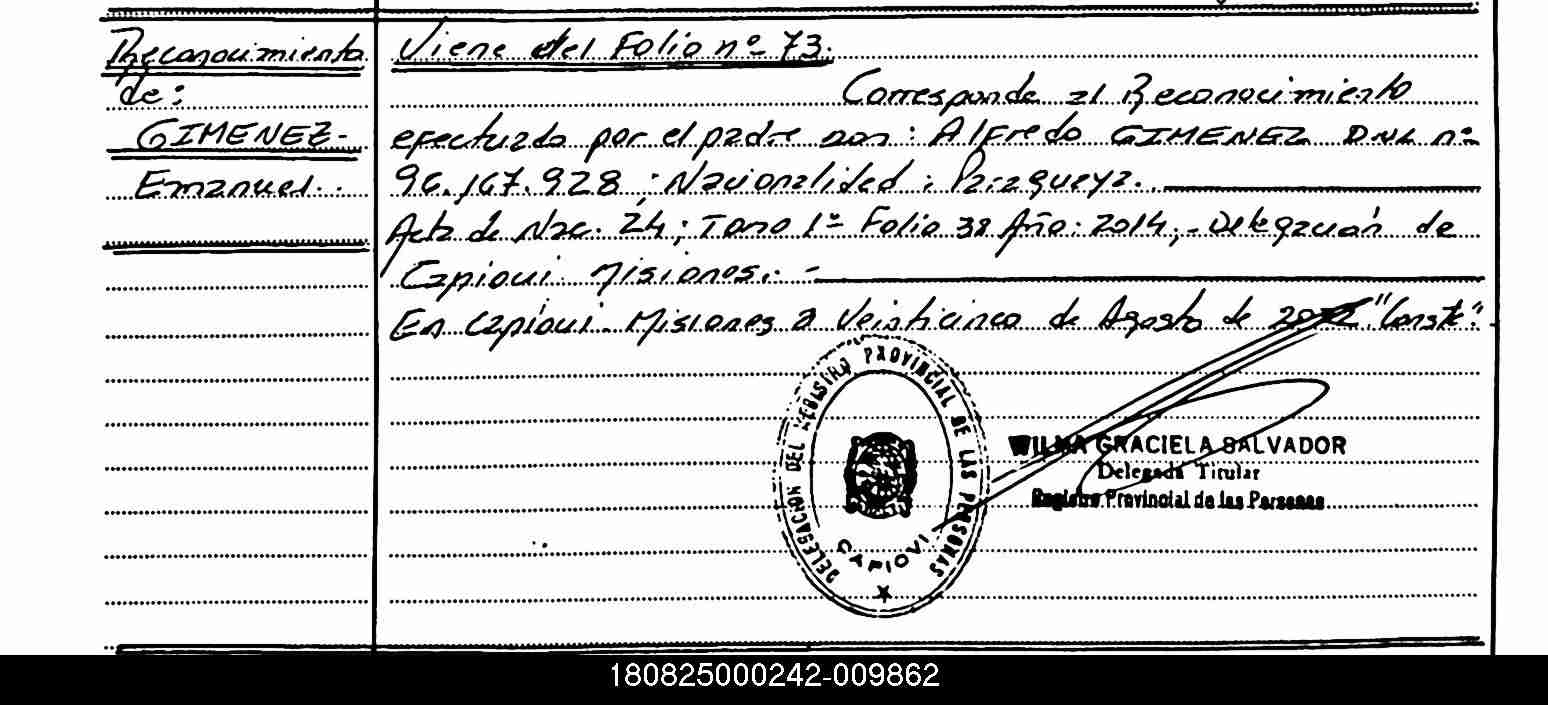 Reconocimiento
de:
GIMENEZ-
Emanuel..
Viene del Folio nº 73.
Corresponde al Reconocimiento
efectuado por el padre don: Alfredo GIMENEZ D.N.I. nº
96.167.928; Nacionalidad: Paraguaya.
Acta de Nac. 24; Tomo 1º Folio 38 Año: 2014,-Delegación de
Capioví Misiones. -
En Capioví. Misiones a Veinticinco de Agosto de "Conste".
DELEGACION DEL REGISTRO PROVINCIAL DE LAS PERSONAS
CAPIOVI
WILMA GRACIELA SALVADOR
Delegada Titular
Registro Provincial de las Personas
180825000242-009862